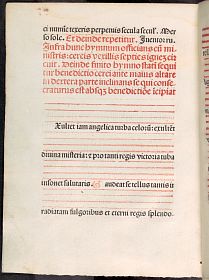 ei nunc et exeris perpenuis secula seculi. Mer
so sole. Et deinde repetitur. Inventor ru.
Infra hunc hymnum officians cum mi
nistris: cereis vexillis septies ignez eis
cuit. Deinde finito hymno stati sequi
tur benedictio cerei ante maius altare
in dextera parte inclinato se qui conse
craturus est absque benedictione icipiat
Exultet iam angelica turba celorum: exultent
divina misteria: et pro tanti regis victoria tuba
insonet salutaris. Gaudeat se tellus tantis ir
radiatam fulgoribus et eterni regis splendo